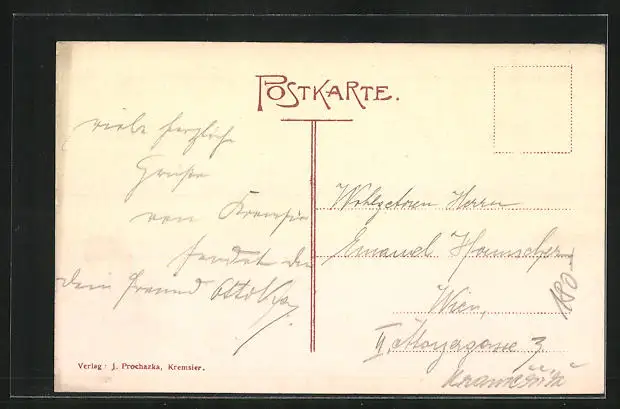 POSTKARTE.
viele herzliche
Grüße
von Kremsier
sendet dir
dein Freund Otto
Wohlgeboren Herrn
Emanuel
Wien,
II. Mayergasse 3
180.-
Verlag: J. Prochazka, Kremsier.